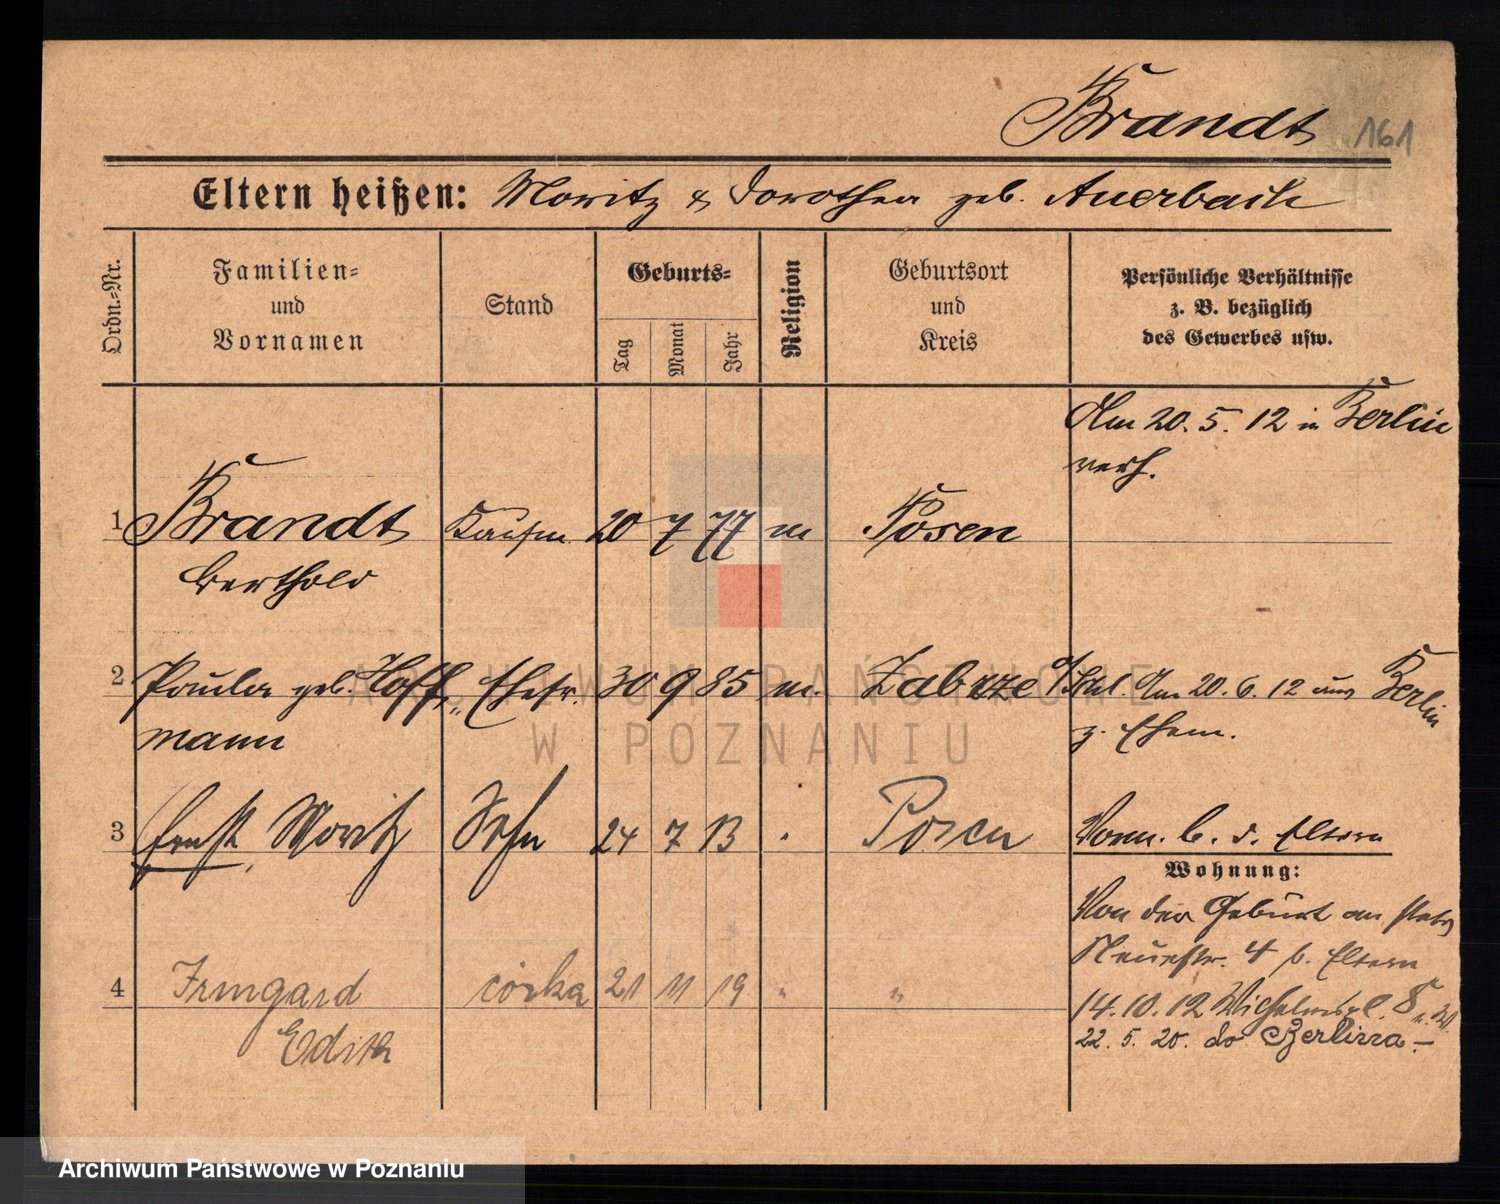 Brandt 161
Eltern heißen: Moritz & Dorothea geb. Auerbach
Ordn.=Nr.
Familien=
und
Vornamen
Stand
Geburts=
Tag
Monat
Jahr
Religion
Geburtsort
und
Kreis
Persönliche Verhältnisse
z. B. bezüglich
des Gewerbes usw.
Am 20. 5. 12 in Berlin
verh.
1 Brandt Kaufm. 20 7 77 m Posen
Berthold
2 Paula geb. Hoff- Ehefr. 30 9 85 m. Zabrze O/Schl. Am 20. 6. 12 aus Berlin
mann
z. Ehem.
3 Ernst, Moritz Sohn 24 7 13 " Posen Vorm. b. d. Eltern
Wohnung:
Von der Geburt an
Neuestr. 4 b. Eltern
4 Irmgard córka 21 11 19 " "
Edith
14. 10. 12 Wilhelmspl. 8
22. 5. 20. do Berlina —
ARCHIWUM PAŃSTWOWE
W POZNANIU
Archiwum Państwowe w Poznaniu